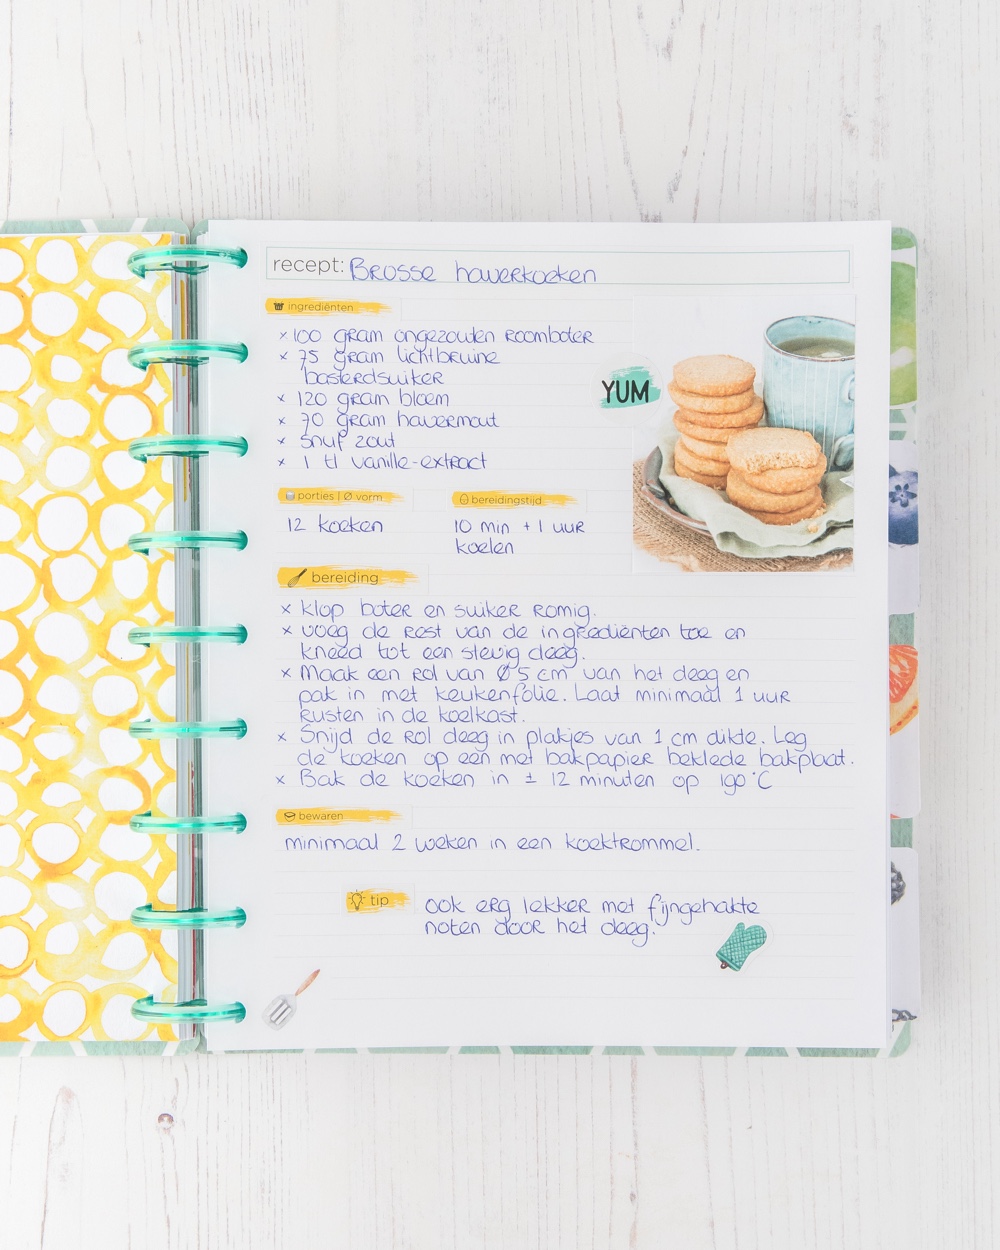 recept: Brosse haverkoeken
ingrediënten
× 100 gram ongezouten roomboter
× 75 gram lichtbruine
basterdsuiker
× 120 gram bloem
× 70 gram havermout
× snuf zout
× 1 tl vanille-extract
YUM
porties | Ø vorm
12 koeken
bereidingstijd
10 min + 1 uur
koelen
bereiding
× Klop boter en suiker romig.
× voeg de rest van de ingrediënten toe en
kneed tot een stevig deeg.
× Maak een rol van Ø 5 cm van het deeg en
pak in met keukenfolie. Laat minimaal 1 uur
rusten in de koelkast.
× Snijd de rol deeg in plakjes van 1 cm dikte. Leg
de koeken op een met bakpapier beklede bakplaat.
× Bak de koeken in ± 12 minuten op 190°C
bewaren
minimaal 2 weken in een koektrommel.
tip
ook erg lekker met fijngehakte
noten door het deeg.